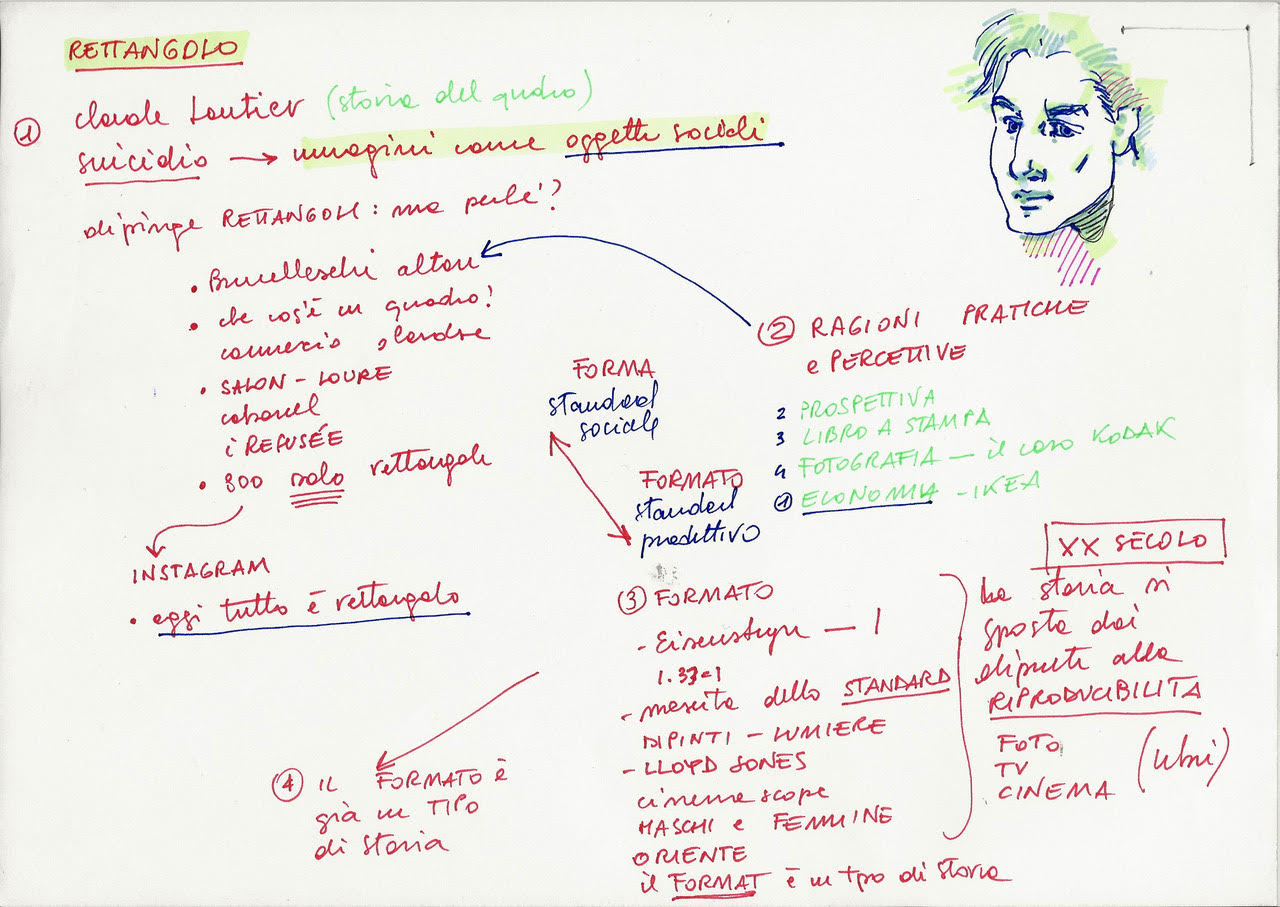 RETTANGOLO
① Claude Lantier (storia del quadro)
suicidio → immagini come oggetti sociali
dipinge RETTANGOLI: ma perché?
• Brunelleschi altari
• che cos'è un quadro?
commercio olandese
• SALON - LOURE
cabanel
i REFUSÉE
• 800 solo rettangoli
INSTAGRAM
• oggi tutto è rettangolo
FORMA
standard
sociale
FORMATO
standard
produttivo
② RAGIONI PRATICHE
e PERCETTIVE
2 PROSPETTIVA
3 LIBRO A STAMPA
4 FOTOGRAFIA — il caso KODAK
① ECONOMIA - IKEA
③ FORMATO
- Eisenstejn —
1.33=1
- nascita dello STANDARD
DIPINTI - LUMIERE
- LLOYD JONES
cinemascope
MASCHI e FEMMINE
ORIENTE
il FORMAT è un tipo di storia
XX SECOLO
La storia si
sposta dai
dipinti alla
RIPRODUCIBILITA
FOTO
TV
CINEMA (libri)
④ IL FORMATO è
già un TIPO
di storia